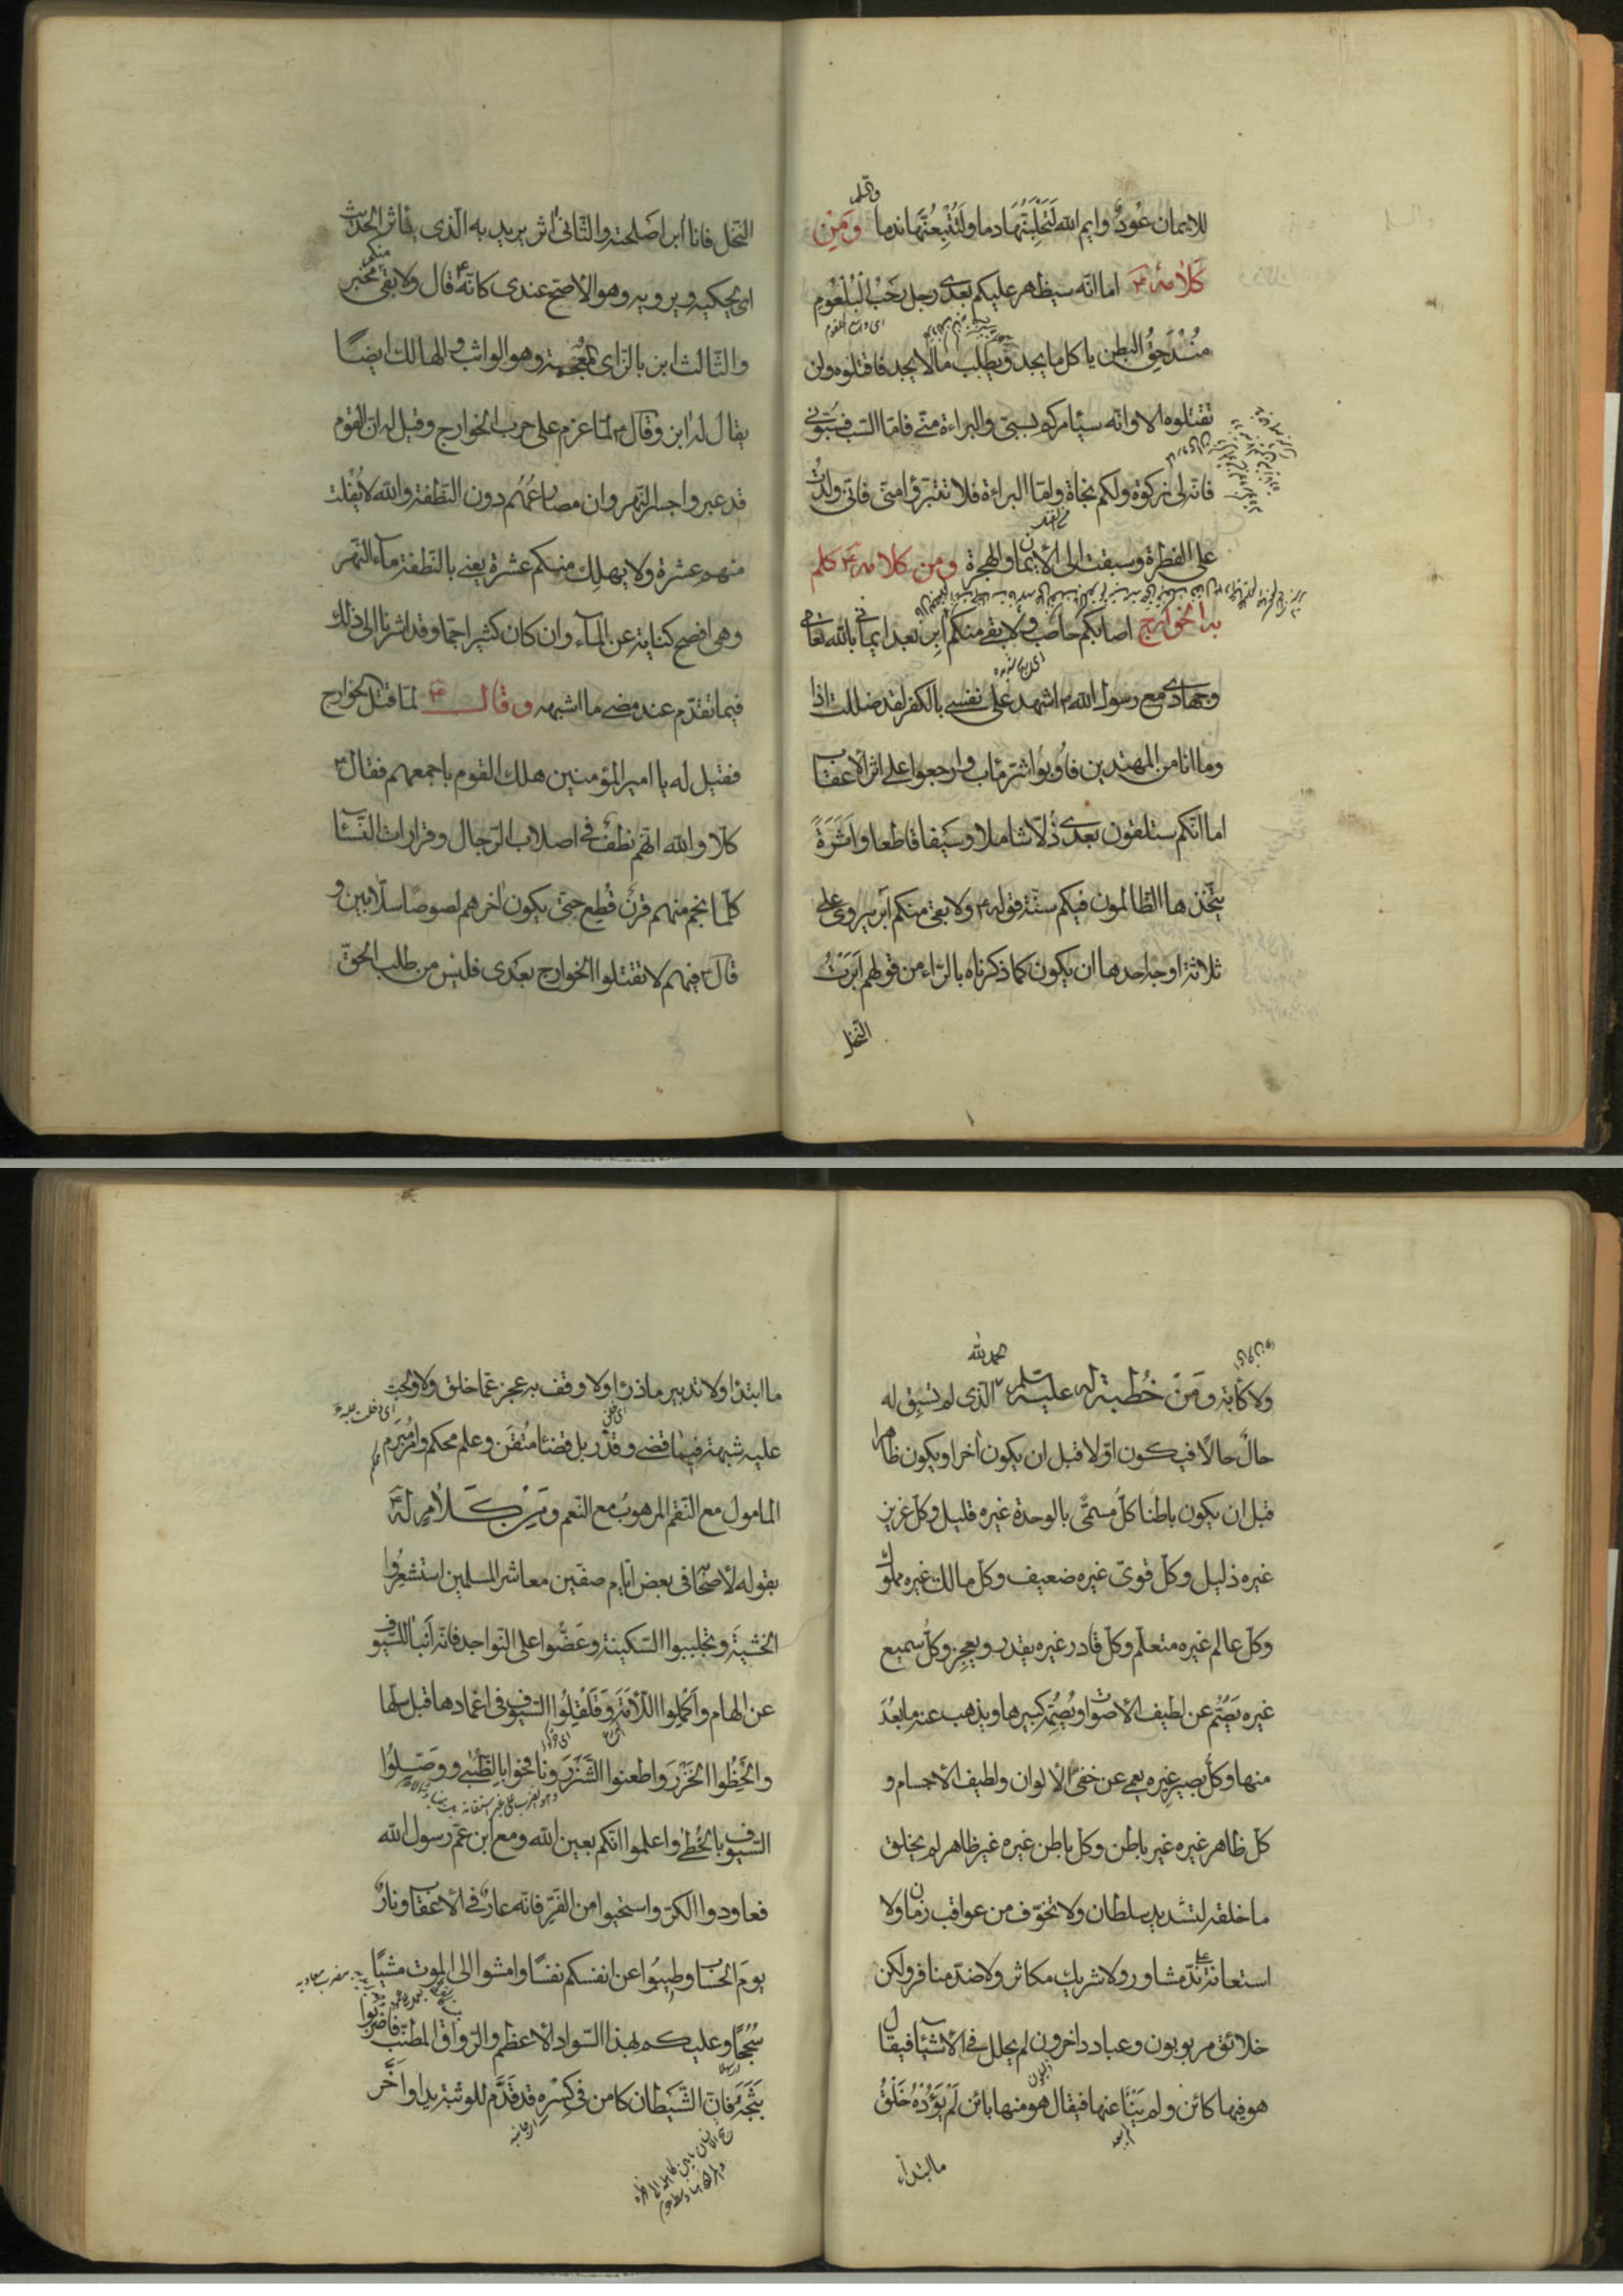 للايمان عودٌ وايم الله لَتَحْلِبُنَّهَا دما ولَتُتْبِعُنَّهَا ندما ومِن
كَلام له ع اما انّه سيظهر عليكم بعدى رجل رَحْبُ الْبُلْعُومِ
اى واسع الحلقوم
مُنْدَحِقُ البطن ياكل ما يجد ويطلب ما لا يجد فاقتلوه ولن
تقتلوه الا وانّه سيأمركم بسبّى والبراءة منّى فامّا السّب فسُبّونى
فانّه لى زكوة ولكم نجاة وامّا البراءة فلا تتبرّؤا منّى فانّى ولدتُ
على الفطرة وسبقت الى الأيمان والهجرة ومن كلام له ع كلم
به الخوارج اصابكم حاصب ولا بقى منكم آبر بعد ايمانى بالله تعالى
وجهادى مع رسول الله ص اشهد على نفسى بالكفر لقد ضللت اذا
وما انا من المهتدين فاُوبُوا شرّ مئاب وارجعوا على اثر الاعقاب
اما انّكم ستلقون بعدى ذُلّا شاملا وسَيفا قاطعا واَثَرَةً
يتّخذها الظالمون فيكم سنّة قوله ع ولا بقى منكم آبر يروى على
ثلاثة اوجه احدها ان يكون كما ذكرناه بالرّاء من قولهم اَبَرْتُ
النّخل
النّخل فانا آبر اصلحته والثّانى آثر يريد به الّذى ياثر الحديث
اى يحكيه ويرويه وهو الأصح عندى كانّه ع قال ولا بقى منكم مخبر
والثّالث ابز بالزاى المُعْجَمة وهو الواثب والهالك ايضًا
يقال له ابز وقال ع لمّا عزم على حرب الخوارج وقيل له ان القوم
قد عبروا جسر النّهروان مصارعُهُم دون النّطفة والله لا يُفْلت
منهم عشرة ولا يهلك منكم عشرة يعنى بالنّطفة ماء النّهر
وهى افصح كناية عن المآء وان كان كثيرا جمّا وقد اشرنا الى ذلك
فيما تقدّم عند مضى ما اشبهه وقال ع لمّا قتل الخوارج
فقيل له يا امير المؤمنين هلك القوم باجمعهم فقال ع
كلّا والله انّهم نطف فى اصلاب الرّجال وقرارات النّسآء
كلّما نجم منهم قرنٌ قُطِع حتى يكون اخرهم لصوصًا سلّابين و
قال ع فيهم لا تقتلوا الخوارج بعدى فليس من طلب الحقّ
ولا كآبة ومن خُطبة له عليه سّلم الحمد لله الّذى لم تسبق له
حالٌ حالًا فيكون اوّلا قبل ان يكون آخرا ويكون ظاهرا
قبل ان يكون باطنًا كلّ مسمّى بالوحدة غيره قليل وكل عزيز
غيره ذليل وكلّ قوىّ غيره ضعيف وكل مالك غيره مملوك
وكلّ عالم غيره متعلّم وكلّ قادر غيره يقدر ويعجز وكلُ سميع
غيره يَصَمُّ عن لطيف الأصوات ويُصِمُّه كبيرها ويذهب عنه ما بَعُدَ
منها وكلّ بصير غيره يعمى عن خفى الألوان ولطيف الأجسام و
كلّ ظاهر غيره غير باطن وكل باطن غيره غير ظاهر لم يخلق
ما خلقه لتشديد سلطان ولا تخوّف من عواقب زمان ولا
استعانة على ندّ مشاور ولا شريك مكاثر ولا ضدّ منافر ولكن
خلائق مربوبون وعباد داخرون لم يحلل فى الأشيآء فيقال
هو فيها كائن ولم يَنْأَ عنها فيقال هو منها بائن لَمْ يَؤُدْهُ خَلْقُ
ما ابتدأ
ما ابتدأ ولا تدبير ما ذرأ ولا وقف به عجز عمّا خلق ولا ولجت
عليه شبهة فيما قضى وقدّر بل قضآء مُتْقَن وعلم محكم وامرٌ مُبرَم
المامول مع النّقم المرهوب مع النّعم ومن كَلام له ع
يقوله لأصحابه فى بعض ايّام صفّين معاشر المسلمين استشعِرُوا
الخشيةَ وتجلببوا السّكينة وعَضُّوا على النّواجد فانّه اَنبأ للسّيوف
عن الهام واَكْمِلُوا اللّأمَةَ وَقَلْقِلُوا السّيوف فى اغمادها قبل سلّها
والْحَظُوا الخَزْرَ واطعنوا الشَّزْرَ ونافحوا بِالظُّبَى ووصِّلُوا
السّيوف بالخُطَى واعلموا انّكم بعين الله ومع ابن عمّ رسول الله
فعاودوا الكرّ واستحيوا من الفَرِّ فانّه عارٌ فى الأعقاب ونارٌ
يومَ الحساب وطِيبُوا عن انفسكم نفسًا وامشوا الى الموت مشيًا
سُجُحًا وعليكم بهذا السّواد الأعظم والرّواق المطنّب فاضربوا
ثَبَجَهُ فانّ الشَّيطان كامن فى كِسْرِهِ قد قَدَّم للوثبة يدا واَخَّر